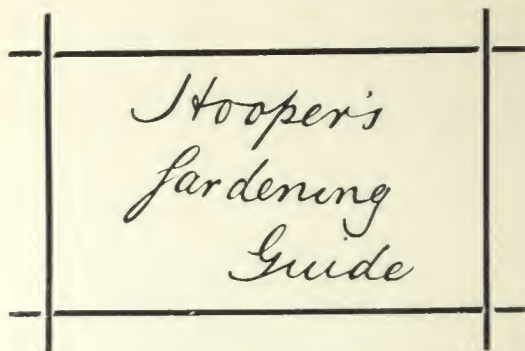 Hooper's
Gardening
Guide